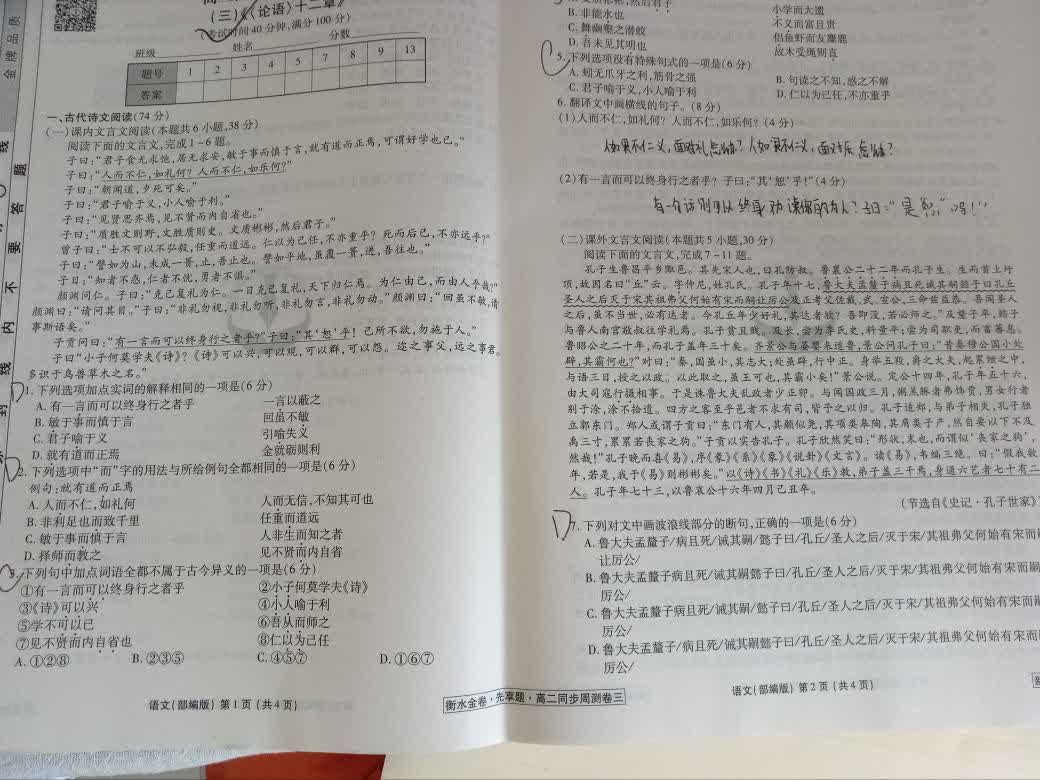 金牌品质
(三)《〈论语〉十二章》
考试时间40分钟,满分100分)
班级 姓名 分数
题号 1 2 3 4 5 7 8 9 13
答案
一、古代诗文阅读(74分)
(一)课内文言文阅读(本题共6小题,38分)
阅读下面的文言文,完成1~6题。
子曰:“君子食无求饱,居无求安,敏于事而慎于言,就有道而正焉,可谓好学也已。”
子曰:“人而不仁,如礼何?人而不仁,如乐何?”
子曰:“朝闻道,夕死可矣。”
子曰:“君子喻于义,小人喻于利。”
子曰:“见贤思齐焉,见不贤而内自省也。”
子曰:“质胜文则野,文胜质则史。文质彬彬,然后君子。”
曾子曰:“士不可以不弘毅,任重而道远。仁以为己任,不亦重乎?死而后已,不亦远乎?”
子曰:“譬如为山,未成一篑,止,吾止也。譬如平地,虽覆一篑,进,吾往也。”
子曰:“知者不惑,仁者不忧,勇者不惧。”
颜渊问仁。子曰:“克己复礼为仁。一日克己复礼,天下归仁焉。为仁由己,而由人乎哉?”
颜渊曰:“请问其目。”子曰:“非礼勿视,非礼勿听,非礼勿言,非礼勿动。”颜渊曰:“回虽不敏,请
事斯语矣。”
子贡问曰:“有一言而可以终身行之者乎?”子曰:“其‘恕’乎!己所不欲,勿施于人。”
子曰“小子何莫学夫《诗》?《诗》可以兴,可以观,可以群,可以怨。迩之事父,远之事君。
多识于鸟兽草木之名。”
D
1. 下列选项加点实词的解释相同的一项是(6分)
A. 有一言而可以终身行之者乎 一言以蔽之
B. 敏于事而慎于言 回虽不敏
C. 君子喻于义 引喻失义
D. 就有道而正焉 金就砺则利
D
2. 下列选项中“而”字的用法与所给例句全都相同的一项是(6分)
例句:就有道而正焉
A. 人而不仁,如礼何 人而无信,不知其可也
B. 非利足也而致千里 任重而道远
C. 敏于事而慎于言 人非生而知之者
D. 择师而教之 见不贤而内自省
C
3. 下列句中加点词语全都不属于古今异义的一项是(6分)
①有一言而可以终身行之者乎 ②小子何莫学夫《诗》
③《诗》可以兴 ④小人喻于利
⑤学不可以已 ⑥吾从而师之
⑦见不贤而内自省也 ⑧仁以为己任
A. ①②⑧ B. ②③⑤ C. ④⑤⑦ D. ①⑥⑦
语文(部编版) 第1页(共4页)
衡水金卷·先享题·高二同步周测卷三
小学而大遗
B. 非能水也 不义而富且贵
C. 舞幽壑之潜蛟 侣鱼虾而友麋鹿
D. 吾未见其明也 故木受绳则直
C
5. 下列选项没有特殊句式的一项是(6分)
A. 蚓无爪牙之利,筋骨之强 B. 句读之不知,惑之不解
C. 君子喻于义,小人喻于利 D. 仁以为己任,不亦重乎
6. 翻译文中画横线的句子。(8分)
(1)人而不仁,如礼何?人而不仁,如乐何?(4分)
(2)有一言而可以终身行之者乎?子曰:“其‘恕’乎!”(4分)
(二)课外文言文阅读(本题共5小题,30分)
阅读下面的文言文,完成7~11题。
孔子生鲁昌平乡陬邑。其先宋人也,曰孔防叔。鲁襄公二十二年而孔子生。生而首上圩
顶,故因名曰“丘”云。字仲尼,姓孔氏。孔子年十七,鲁大夫孟釐子病且死诫其嗣懿子曰孔丘
圣人之后灭于宋其祖弗父何始有宋而嗣让厉公及正考父佐戴、武、宣公,三命兹益恭。吾闻圣人
之后,虽不当世,必有达者。今孔丘年少好礼,其达者欤?吾即没,若必师之。”及釐子卒,懿子
与鲁人南宫敬叔往学礼焉。孔子贫且贱。及长,尝为季氏史,料量平;尝为司职吏,而畜蕃息。
鲁昭公之二十年,而孔子盖年三十矣。齐景公与晏婴来适鲁,景公问孔子曰:“昔秦穆公国小处
辟,其霸何也?”对曰:“秦,国虽小,其志大;处虽辟,行中正。身举五羖,爵之大夫,起累绁之中,
与语三日,授之以政。以此取之,虽王可也,其霸小矣!”景公说。定公十四年,孔子年五十六,
由大司寇行摄相事。于是诛鲁大夫乱政者少正卯。与闻国政三月,粥羔豚者弗饰贾,男女行者
别于涂,涂不拾遗。四方之客至乎邑者不求有司,皆予之以归。孔子适郑,与弟子相失,孔子独
立郭东门。郑人或谓子贡曰:“东门有人,其颡似尧,其项类皋陶,其肩类子产,然自要以下不及
禹三寸,累累若丧家之狗。”子贡以实告孔子。孔子欣然笑曰:“形状,末也,而谓似‘丧家之狗’,
然哉!”孔子晚而喜《易》,序《彖》《系》《象》《说卦》《文言》。读《易》,韦编三绝。曰:“假我数
年,若是,我于《易》则彬彬矣。”以《诗》《书》《礼》《乐》教,弟子盖三千焉,身通六艺者七十有二
人。孔子年七十三,以鲁哀公十六年四月己丑卒。
(节选自《史记·孔子世家》)
D
7. 下列对文中画波浪线部分的断句,正确的一项是(6分)
A. 鲁大夫孟釐子/病且死/诫其嗣/懿子曰/孔丘/圣人之后/灭于宋/其祖弗父何始有宋而嗣
让厉公/
B. 鲁大夫孟釐子病且死/诫其嗣懿子曰/孔丘/圣人之后/灭于宋/其祖弗父何始有宋而嗣
厉公/
C. 鲁大夫孟釐子病且死/诫其嗣/懿子曰/孔丘/圣人之后/灭于宋/其祖弗父何始有宋而嗣
厉公/
D. 鲁大夫孟釐子/病且死/诫其嗣懿子曰/孔丘/圣人之后/灭于宋/其祖弗父何始有宋而
厉公/
语文(部编版) 第2页(共4页)